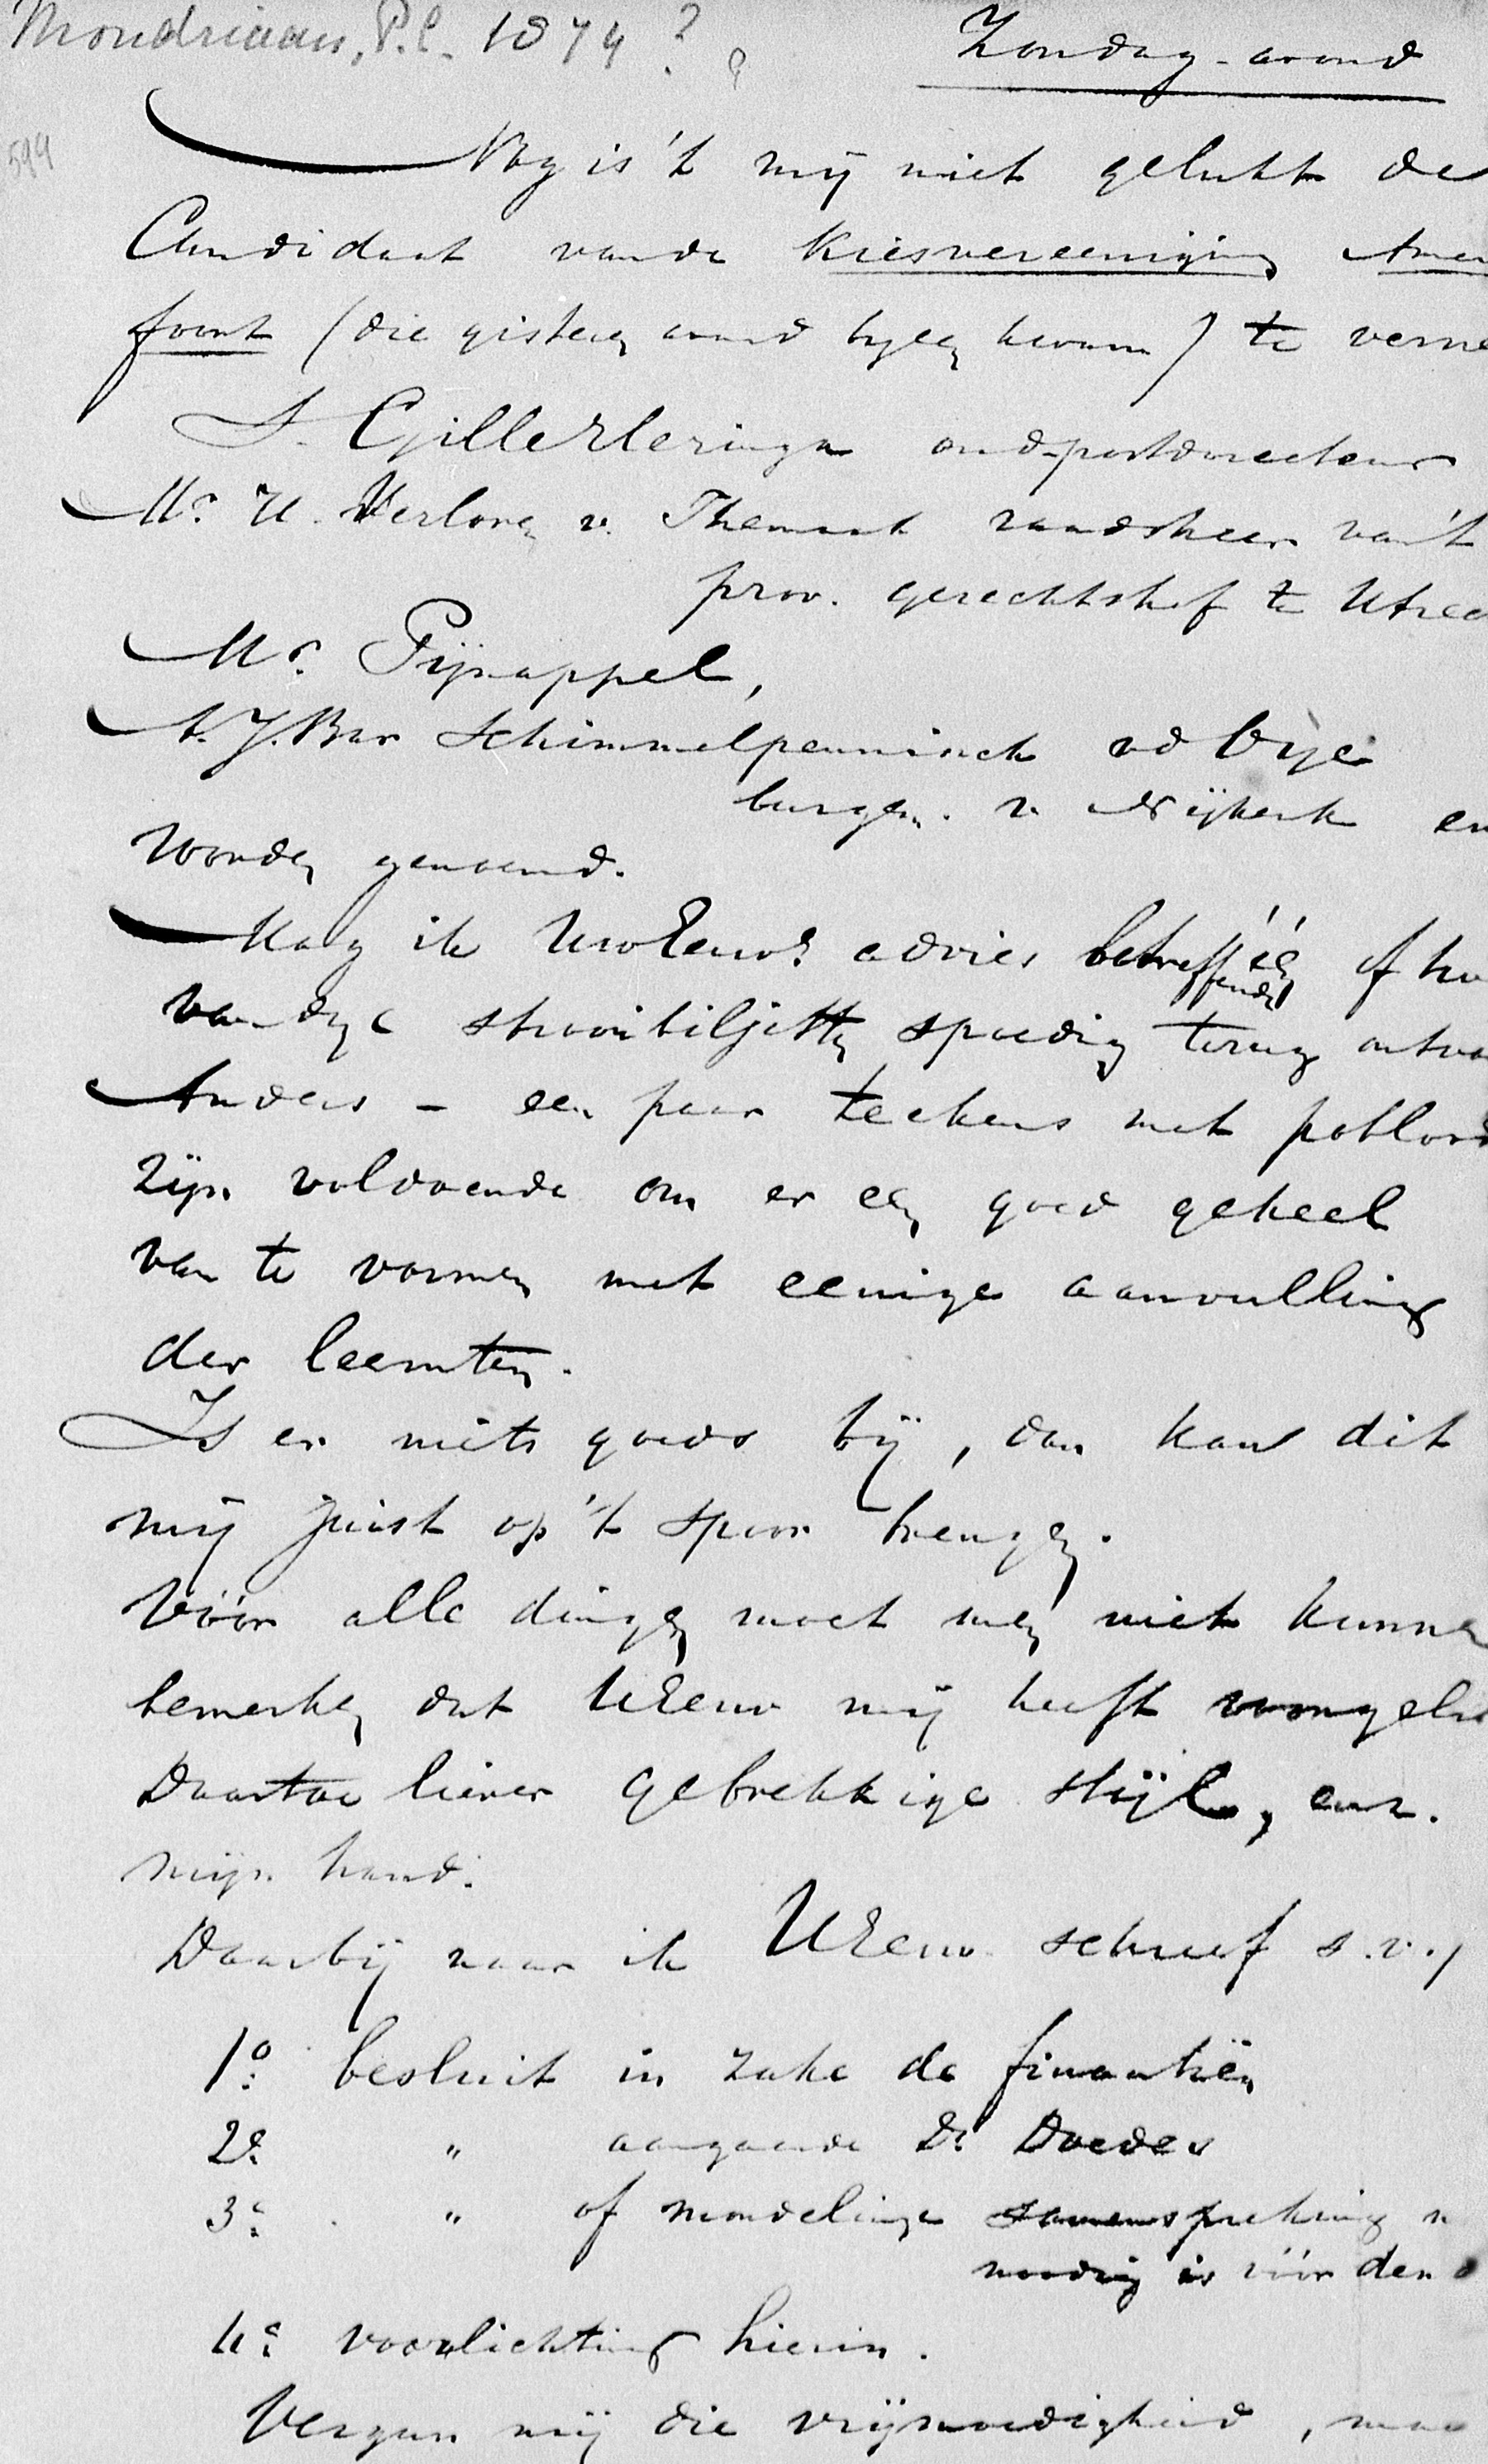 Mondriaan, P.C. 1874 ?
Zondag-avond
599
Nog is 't mij niet gelukt de
Candidaat van de Kiesvereeniging Amer
foort (die gisteren avond byeen kwam) te verne
S. Gille Heringa oud-postdirecteur
Mr. W. Verloren v. Themaat raadsheer van 't
prov. gerechtshof te Utrec
Mr. Pijnappel,
A. J. Bar Schimmelpenninck vd Oye
burgem. v. Nijkerk en
worden genoemd.
Mag ik UwEerw's advies betreffende één of tw
van dye strooibiljetten spoedig terug ontva
Anders - een paar teekens met potlood
zijn voldoende om er een goed geheel
van te vormen met eenige aanvulling
der leemten.
Is er niets goeds bij, dan kan dit
mij juist op 't spoor brengen.
Vóór alle dingen moet men niet kunne
bemerken dat UEerw mij heeft voorgelic
Daartoe liever gebrekkige stijl, enz.
mijn hand.
Daarbij waar ik UEerw. schreef s.v.p
1o. besluit in zake de finantiën
2o. " aangaande Dr Doedes
3o. " of mondelinge samenspreking n
noodig is vóór den
4o. voorlichting hierin.
Vergun mij die vrijmoedigheid, maa